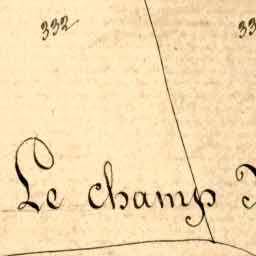 332
Le champ